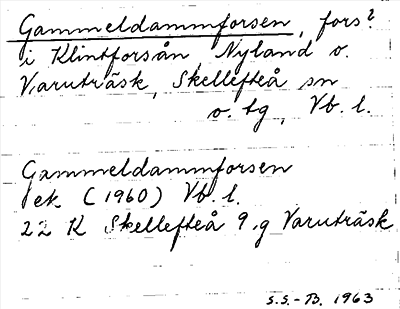 Gammeldammforsen, fors?
i Klintforsån, Nyland o.
Varuträsk, Skellefteå sn
o. tg, Vb. l.
Gammeldammforsen
ek. (1960) Vb. l.
22 K Skellefteå 9.g Varuträsk
S.S.-B. 1963